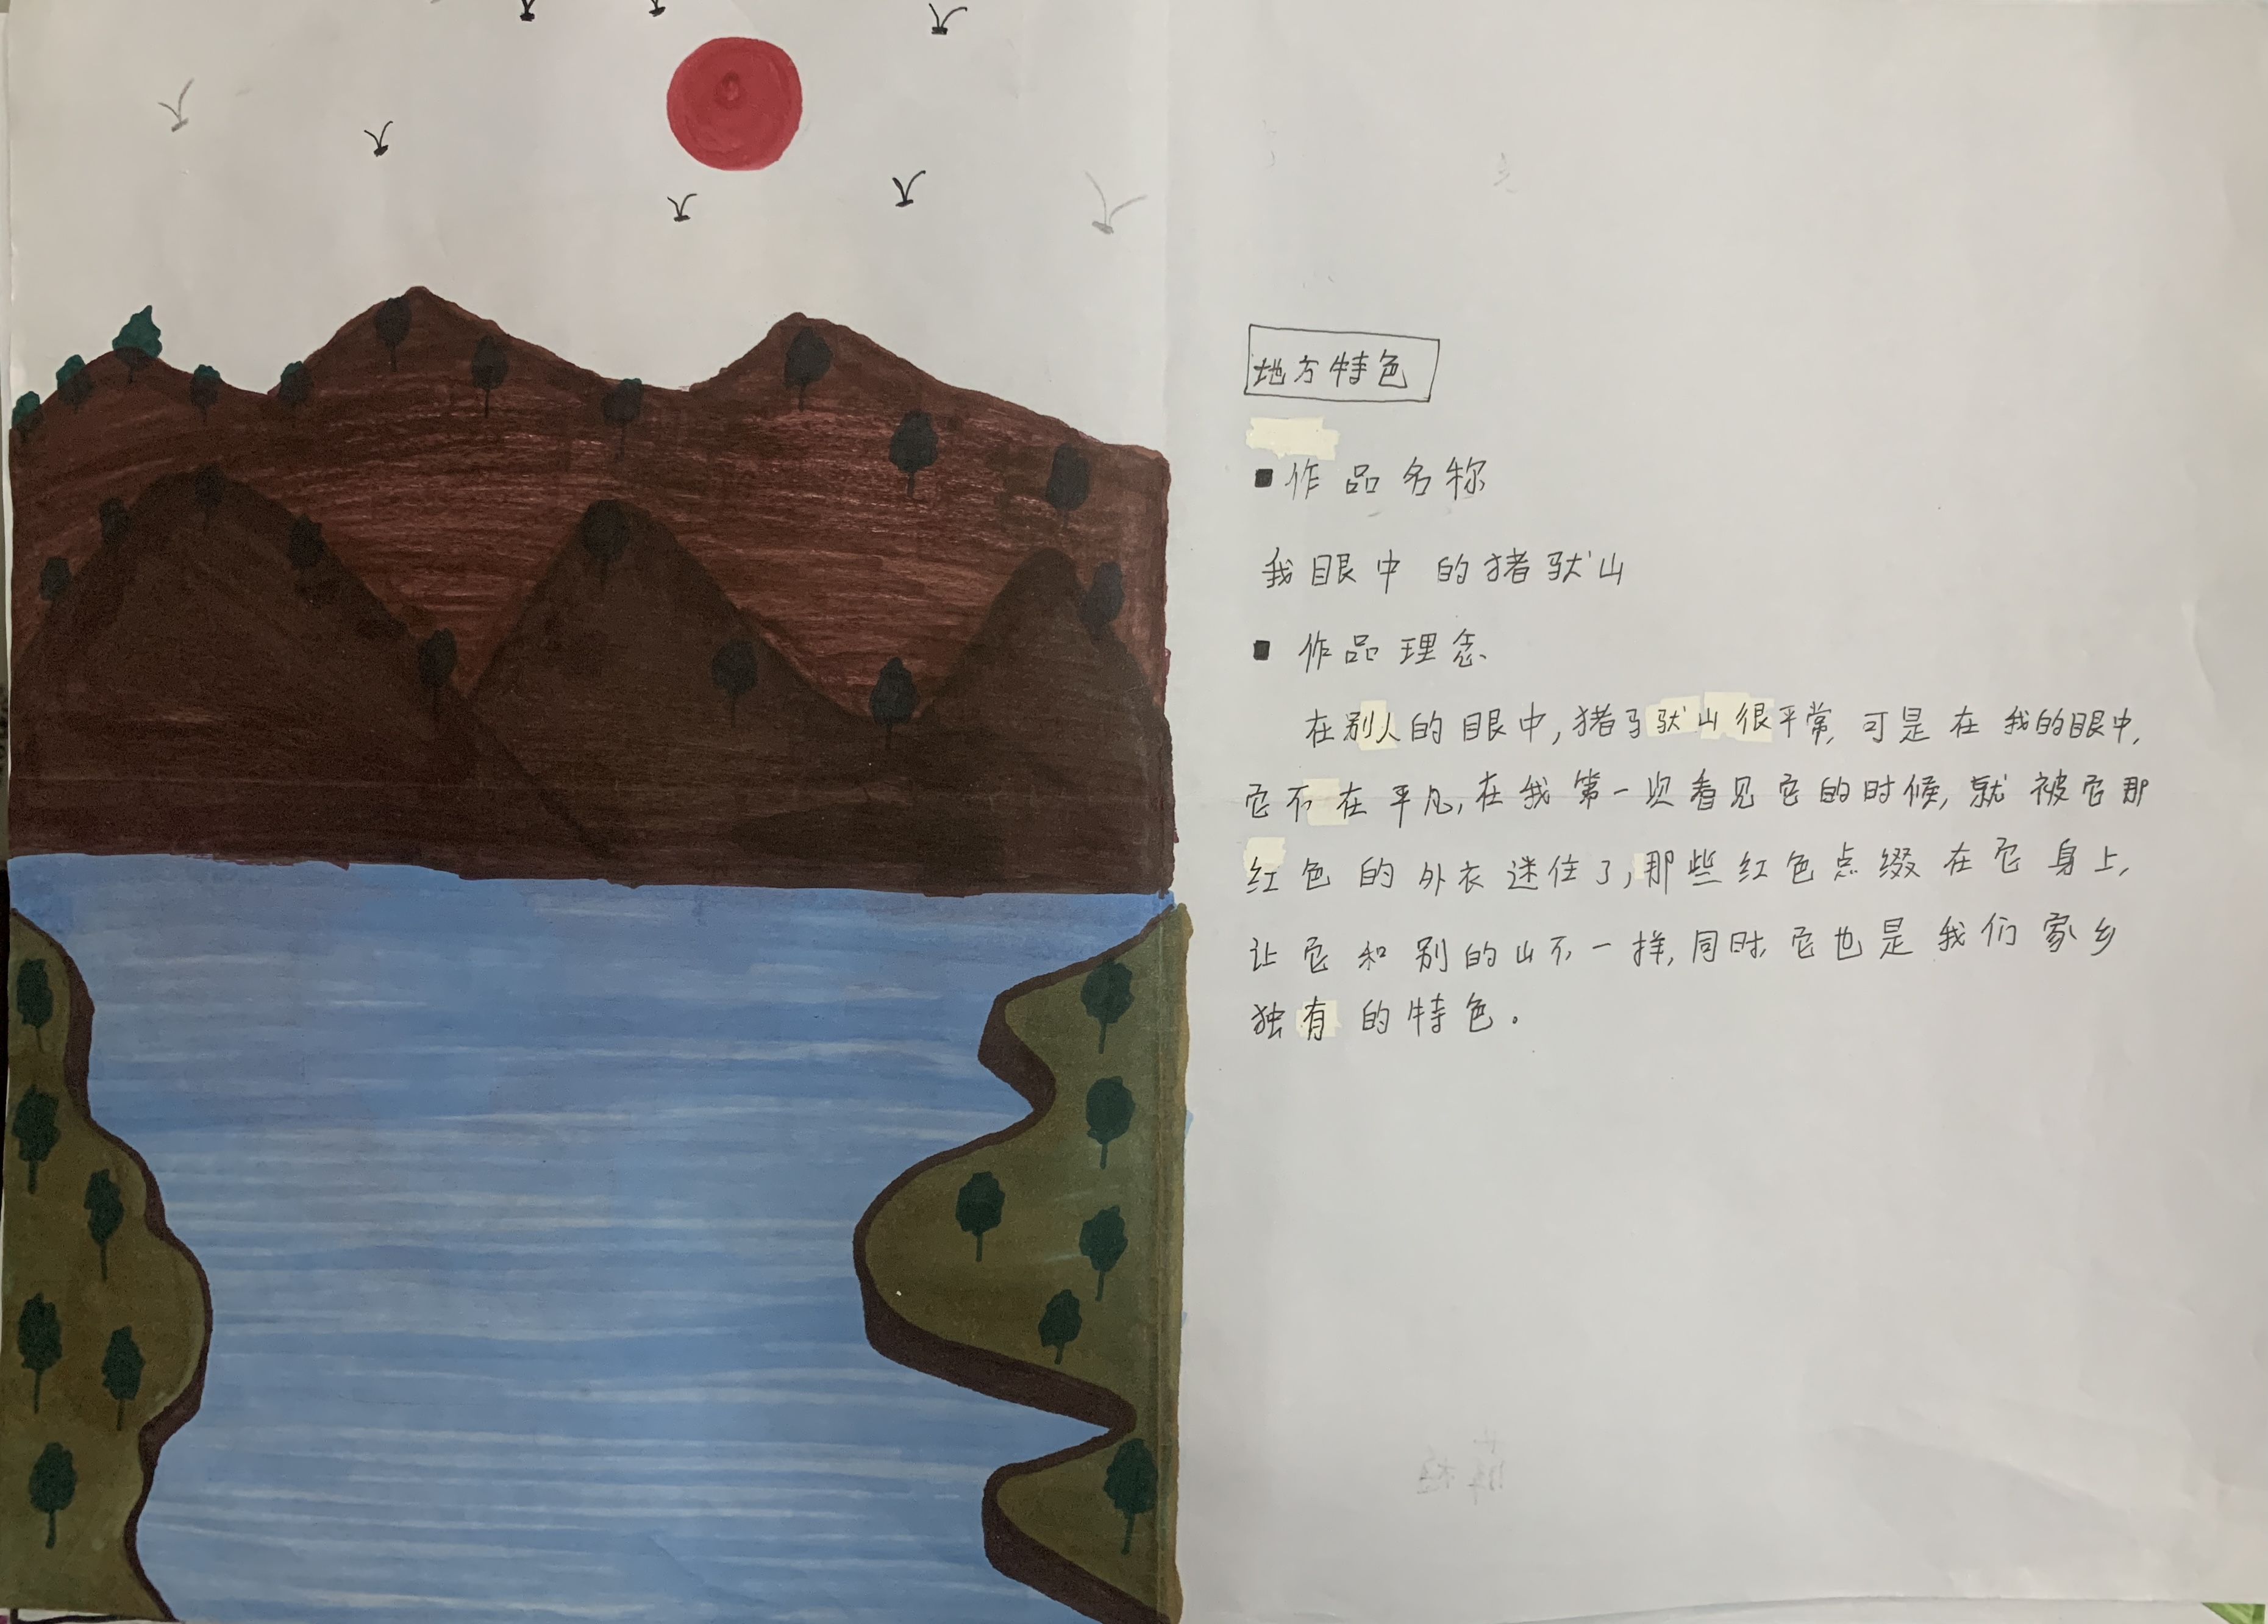 地方特色
■作品名称
我眼中的猪驮山
■作品理念
在别人的眼中,猪马驮山很平常,可是在我的眼中,
它不在平凡,在我第一次看见它的时候,就被它那
红色的外衣迷住了,那些红色点缀在它身上,
让它和别的山不一样,同时,它也是我们家乡
独有的特色.